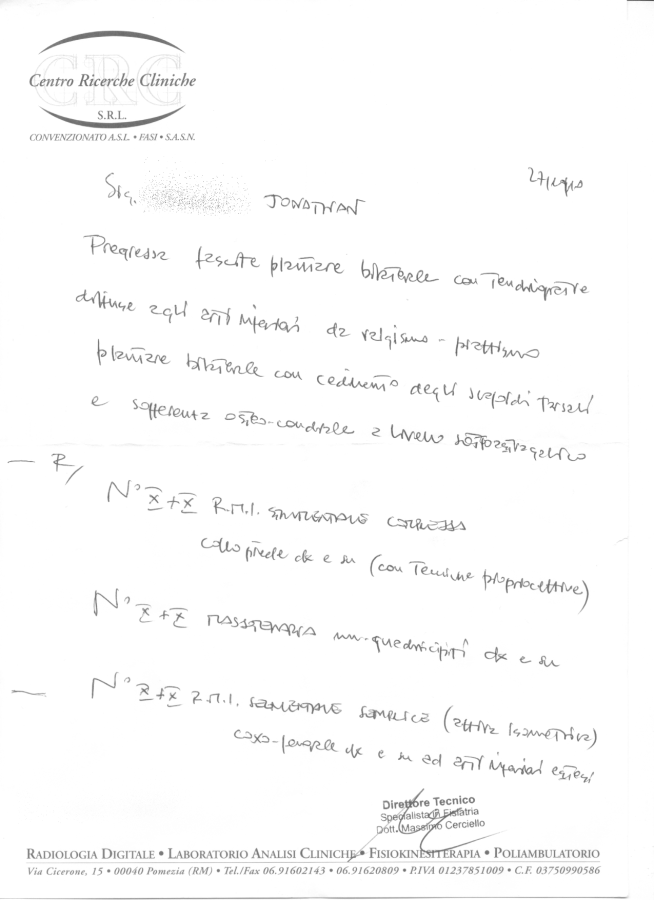 CRC
Centro Ricerche Cliniche
S.R.L.
CONVENZIONATO A.S.L. • FASI • S.A.S.N.
Sig. JONATHAN
Pregressa fascite plantare bilaterale con
diffuse agli arti inferiori da valgismo - piattismo
plantare bilaterale con cedimento degli scafoidi tarsali
e sofferenza osteo-condrale a livello sottoastragalico
R/
N° X+X R.M.I. SEGMENTALE COMPLESSA
collo piede dx e sn (con Tecniche propriocettive)
N° X+X MASSOTERAPIA mm. quadricipiti dx e sn
N° X+X R.M.I. SEGMENTALE SEMPLICE (attiva Isometrica)
coxo-femorale dx e sn ad arti inferiori estesi
Direttore Tecnico
Specialista in Fisiatria
Dott. Massimo Cerciello
RADIOLOGIA DIGITALE • LABORATORIO ANALISI CLINICHE • FISIOKINESITERAPIA • POLIAMBULATORIO
Via Cicerone, 15 • 00040 Pomezia (RM) • Tel./Fax 06.91602143 • 06.91620809 • P.IVA 01237851009 • C.F. 03750990586